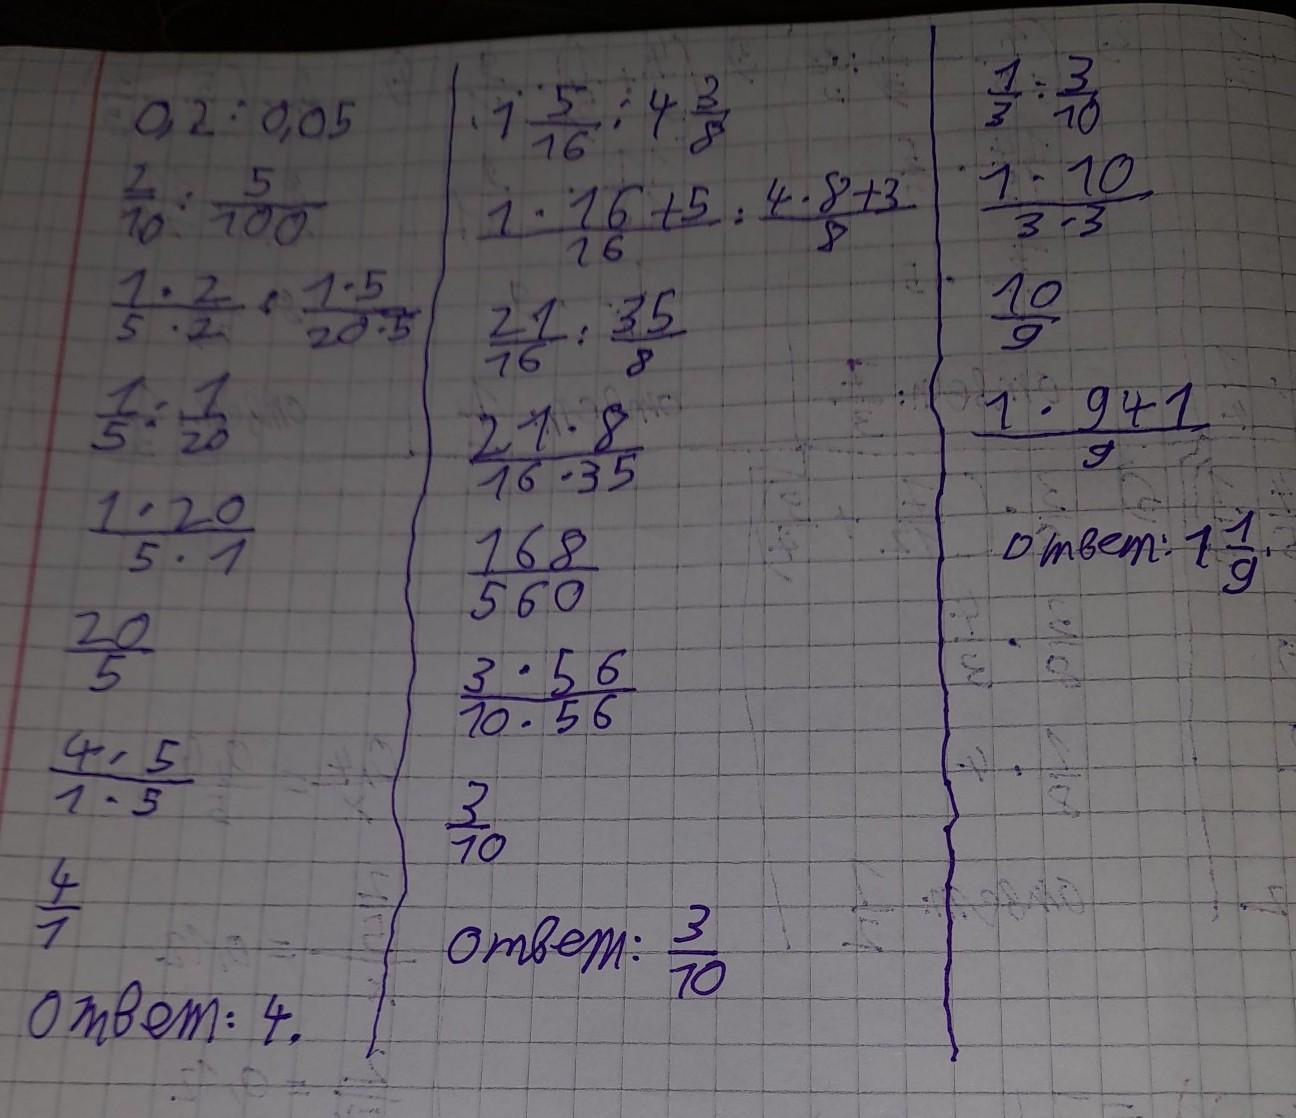 0,2 : 0,05
2/10 : 5/100
1·2/5·2 : 1·5/20·5
1/5 : 1/20
1·20/5·1
20/5
4·5/1·5
4/1
Ответ: 4.
1 5/16 : 4 3/8
1·16+5/16 : 4·8+3/8
21/16 : 35/8
21·8/16·35
168/560
3·56/10·56
3/10
Ответ: 3/10
1/3 : 3/10
1·10/3·3
10/9
1·9+1/9
Ответ: 1 1/9.